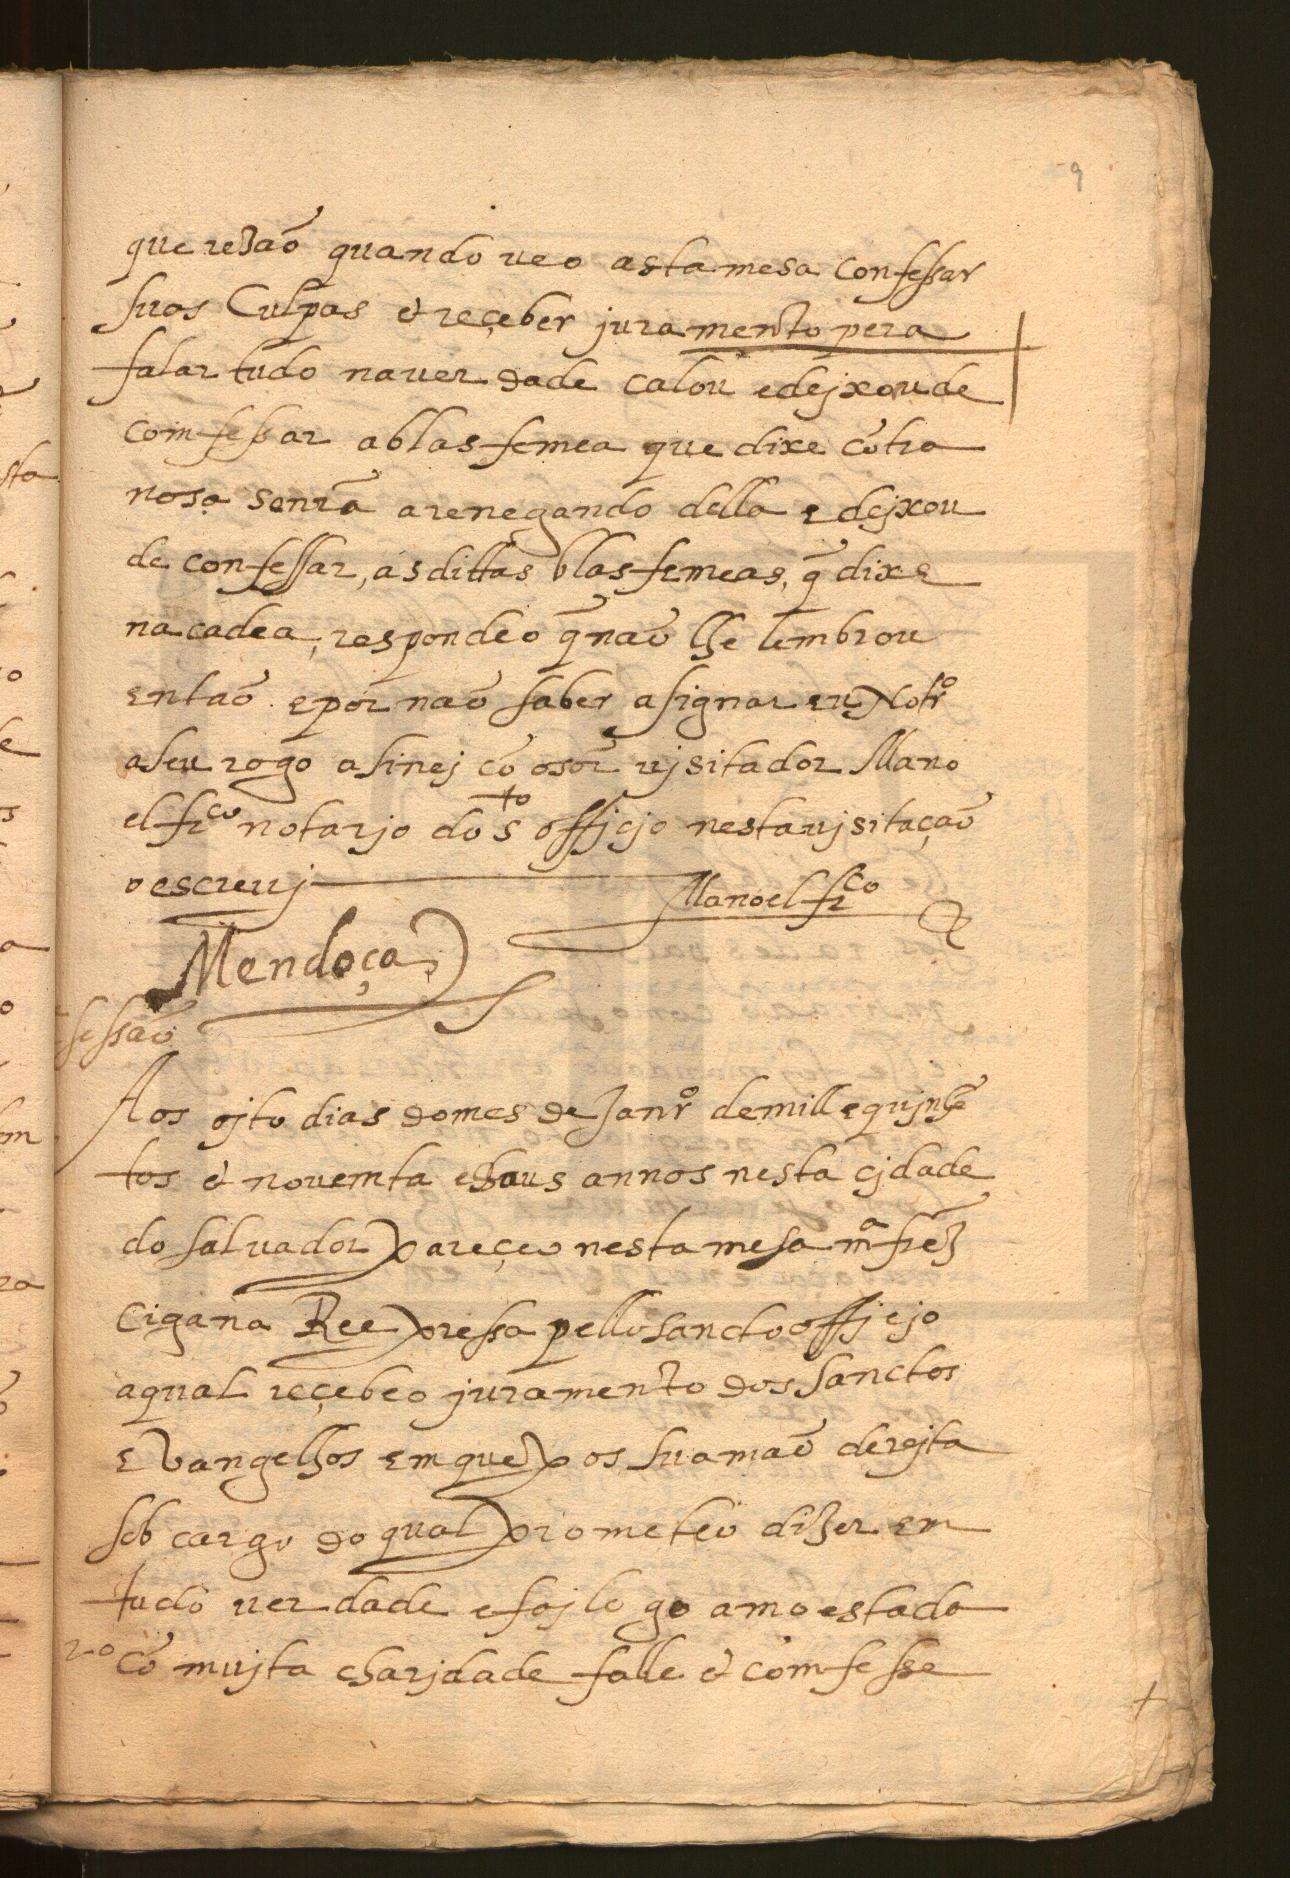 9
que rezaõ quando veo a esta mesa confessar
suas Culpas & reçeber juramento pera
falar tudo na verdade calou e dejxou de
comfessar a blasfemea que dixe cõtra
nosa senrã arenegando della e dejxou
de confessar, as dittas blasfemeas, q̃ dixe
na cadea, respondeo q̃ naõ lhe lembrou
entaõ e por naõ saber asignar eu notrº
a seu rogo asinej cõ o sõr vjsitador Mano
el frco notarjo do sto offjcjo nesta vjsitaçaõ
o escrevj Manoel frco
Mendoça
sessaõ
Aos ojto dias do mes de Janrº de mill e qujnhẽ
tos & novemta e hũs annos nesta cjdade
do salvador pareçeo nesta mesa mª frz̃
cigana Ree presa pello sancto offjcjo
a qual reçebeo juramento dos sanctos
evangelhos em que pos sua maõ derejta
sob cargo do qual prometeo dizer em
tudo verdade e foj logo amoestada
cõ mujta charjdade falle & comfesse